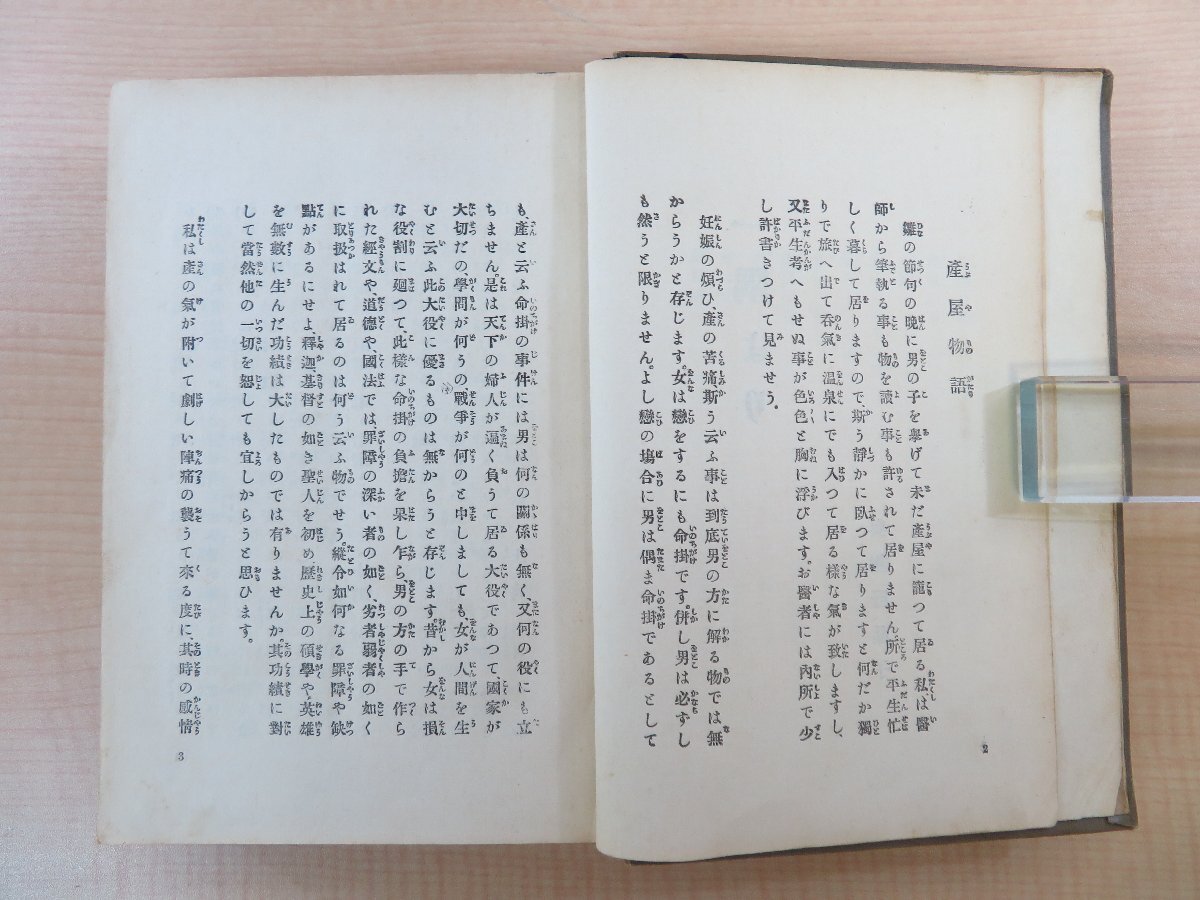 産屋物語
雛の節句の晩に男の子を擧げて未だ産屋に籠つて居る私は醫
師から筆執る事も物を讀む事も許されて居りません。所で平生忙
しく暮して居りますので、斯う靜かに臥つて居りますと何だか獨
りで旅へ出て呑氣に溫泉にでも入つて居る樣な氣が致しますし、
又平生考へもせぬ事が色色と胸に浮びます。お醫者には內所で少
し許書きつけて見ませう。
妊娠の煩ひ、產の苦痛斯う云ふ事は到底男の方に解る物では無
からうかと存じます。女は戀をするにも命掛です。併し男は必ずし
も然うと限りません。よし戀の塲合に男は偶ま命掛であるとして
2
も、產と云ふ命掛の事件には男は何の關係も無く、又何の役にも立
ちません。是は天下の婦人が遍く負うて居る大役であつて、國家が
大切だの、學問が何うの、戰爭が何のと申しましても、女が人間を生
むと云ふ此大役に優るものは無からうと存じます。昔から女は損
な役割に廻つて、此樣な命掛の負擔を果し乍ら男の方の手で作ら
れた經文や、道德や、國法では罪障の深い者の如く、劣者弱者の如く
に取扱はれて居るのは何う云ふ物でせう。縱令如何なる罪障や缺
點があるにせよ、釋迦、基督の如き聖人を初め歷史上の碩學や英雄
を無數に生んだ功績は大したものでは有りませんか。其功績に對
して當然他の一切を恕しても宜しからうと思ひます。
私は產の氣が附いて劇しい陣痛の襲うて來る度に、其時の感情
3